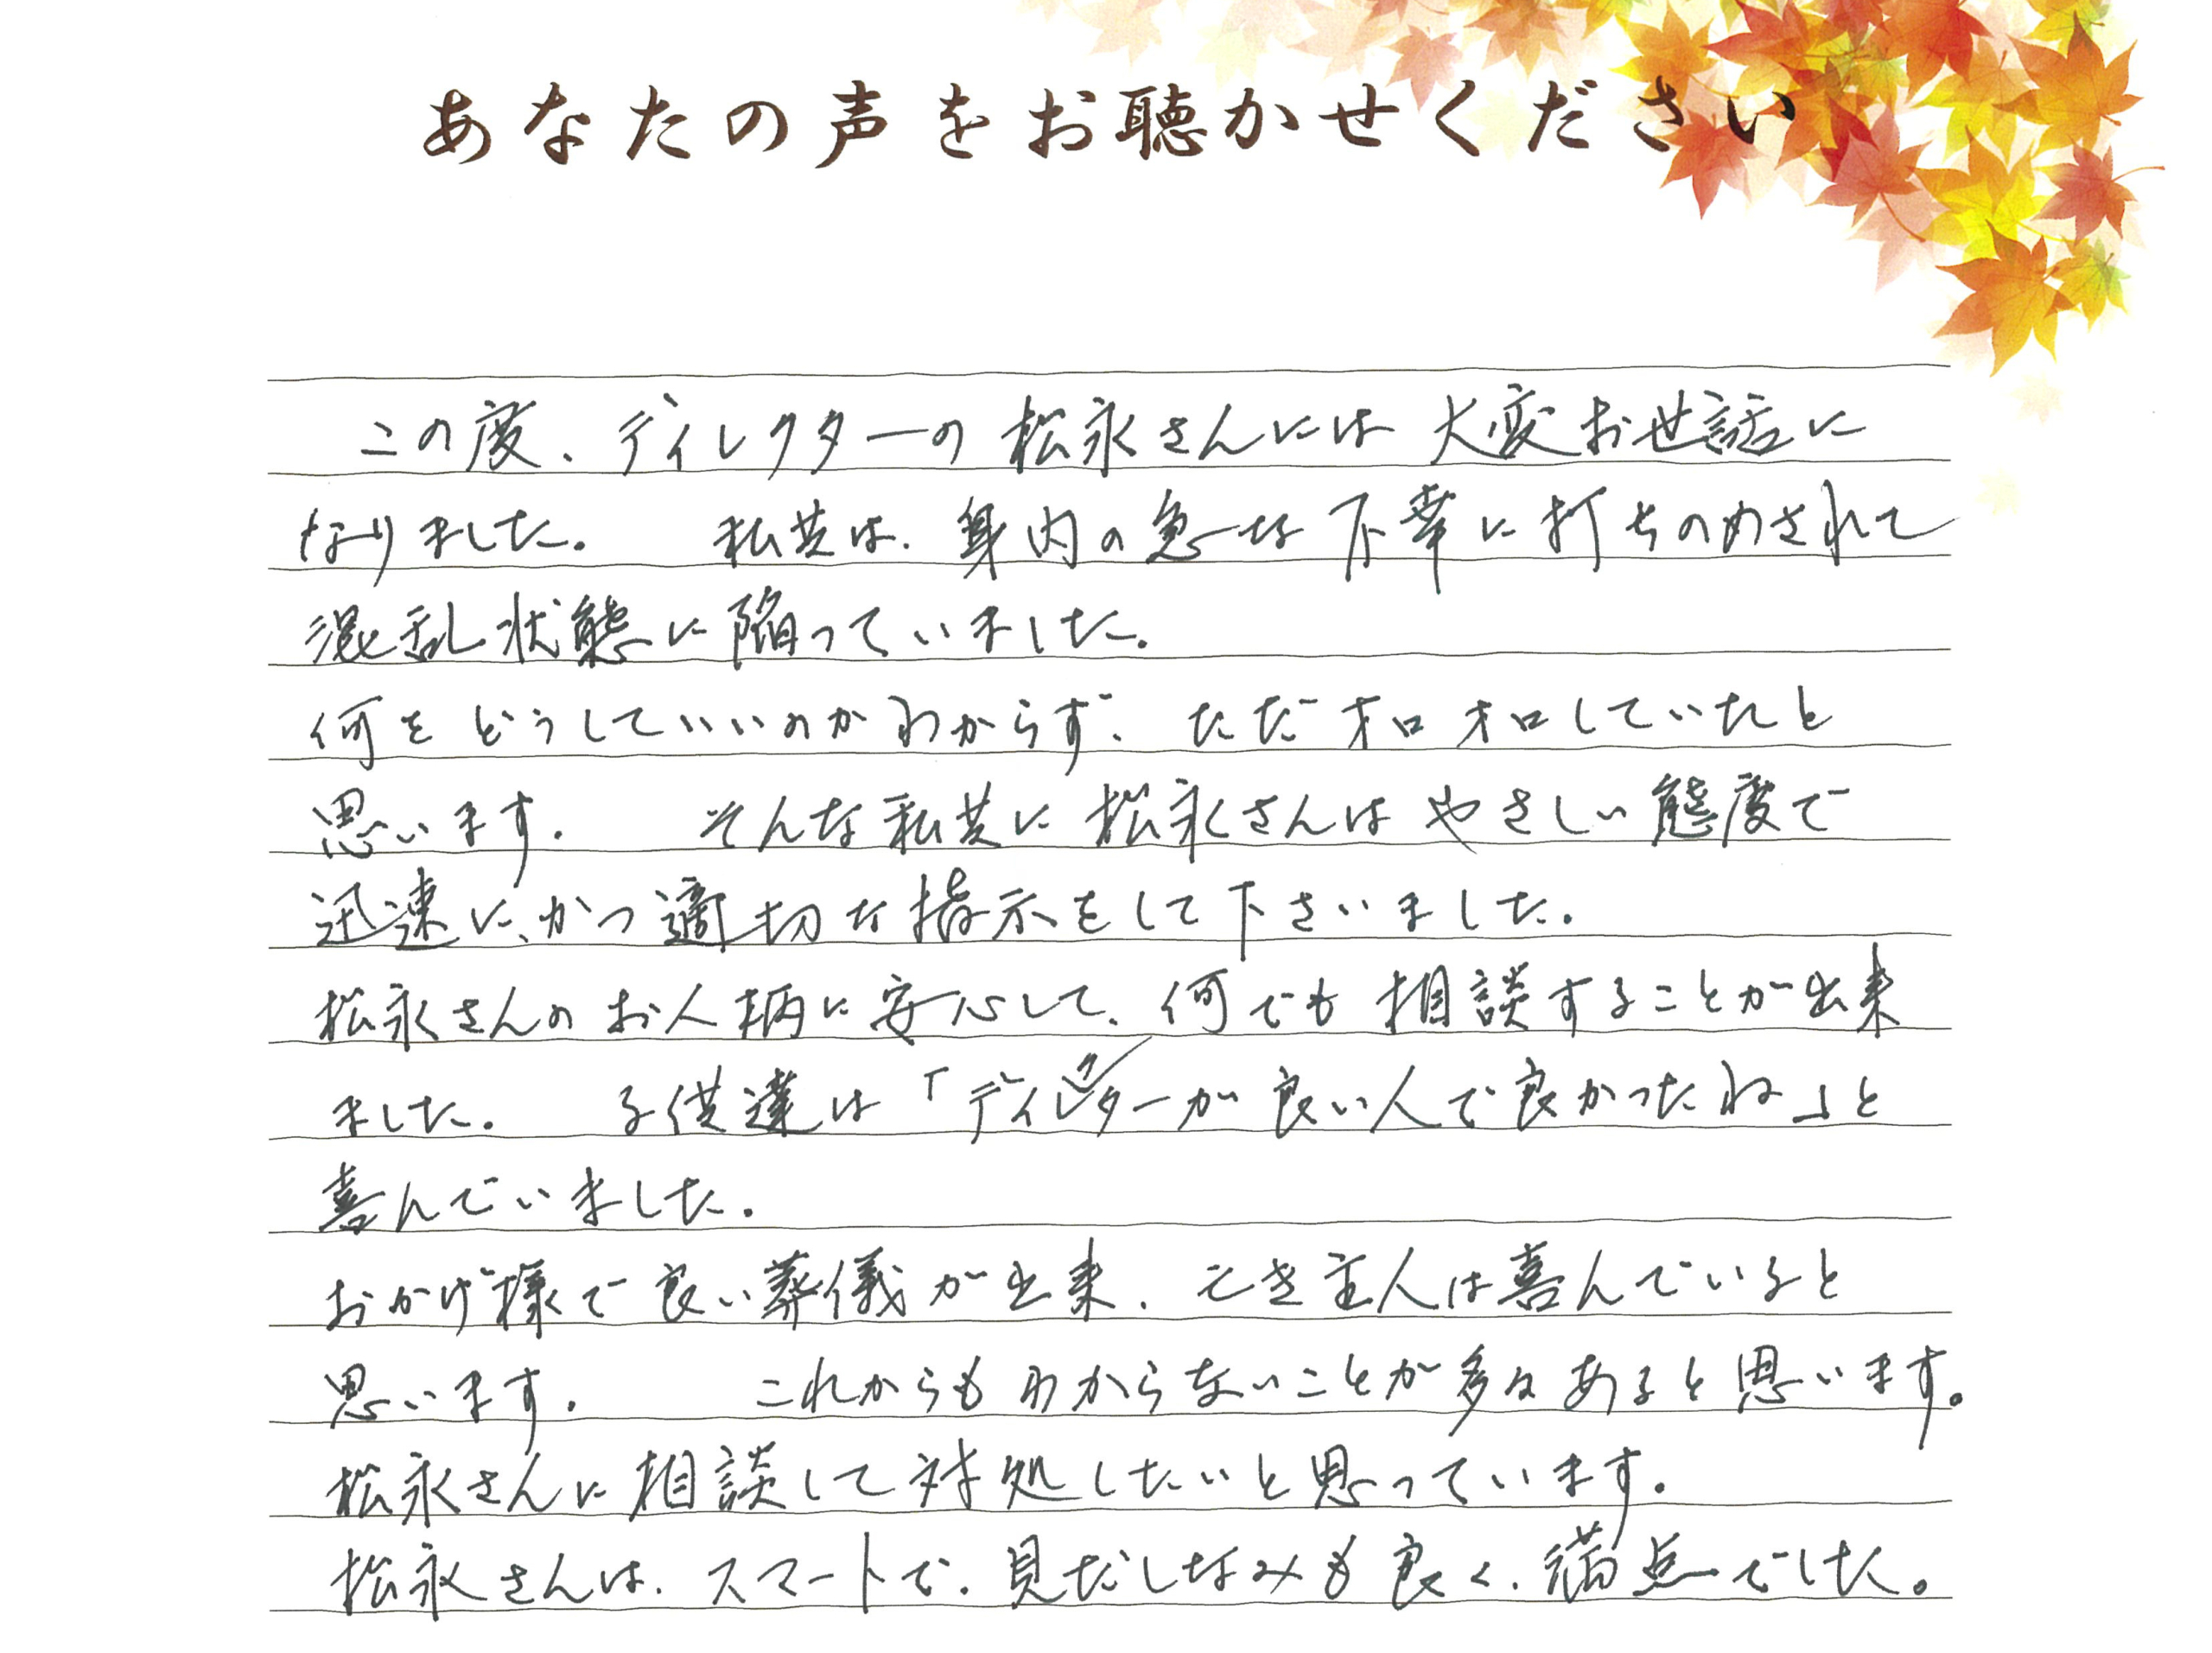 あなたの声をお聴かせください
この度、ディレクターの松永さんには大変お世話に
なりました。 私共は、身内の急な不幸に打ちのめされて
混乱状態に陥っていました。
何をどうしていいのかわからず、ただオロオロしていたと
思います。 そんな私共に松永さんはやさしい態度で
迅速に、かつ適切な指示をして下さいました。
松永さんのお人柄に安心して、何でも相談することが出来
ました。 子供達は「ディレクターが良い人で良かったね」と
喜んでいました。
おかげ様で良い葬儀が出来、亡き主人は喜んでいると
思います。 これからもわからないことが多々あると思います。
松永さんに相談して対処したいと思っています。
松永さんは、スマートで、見だしなみも良く、満点でした。